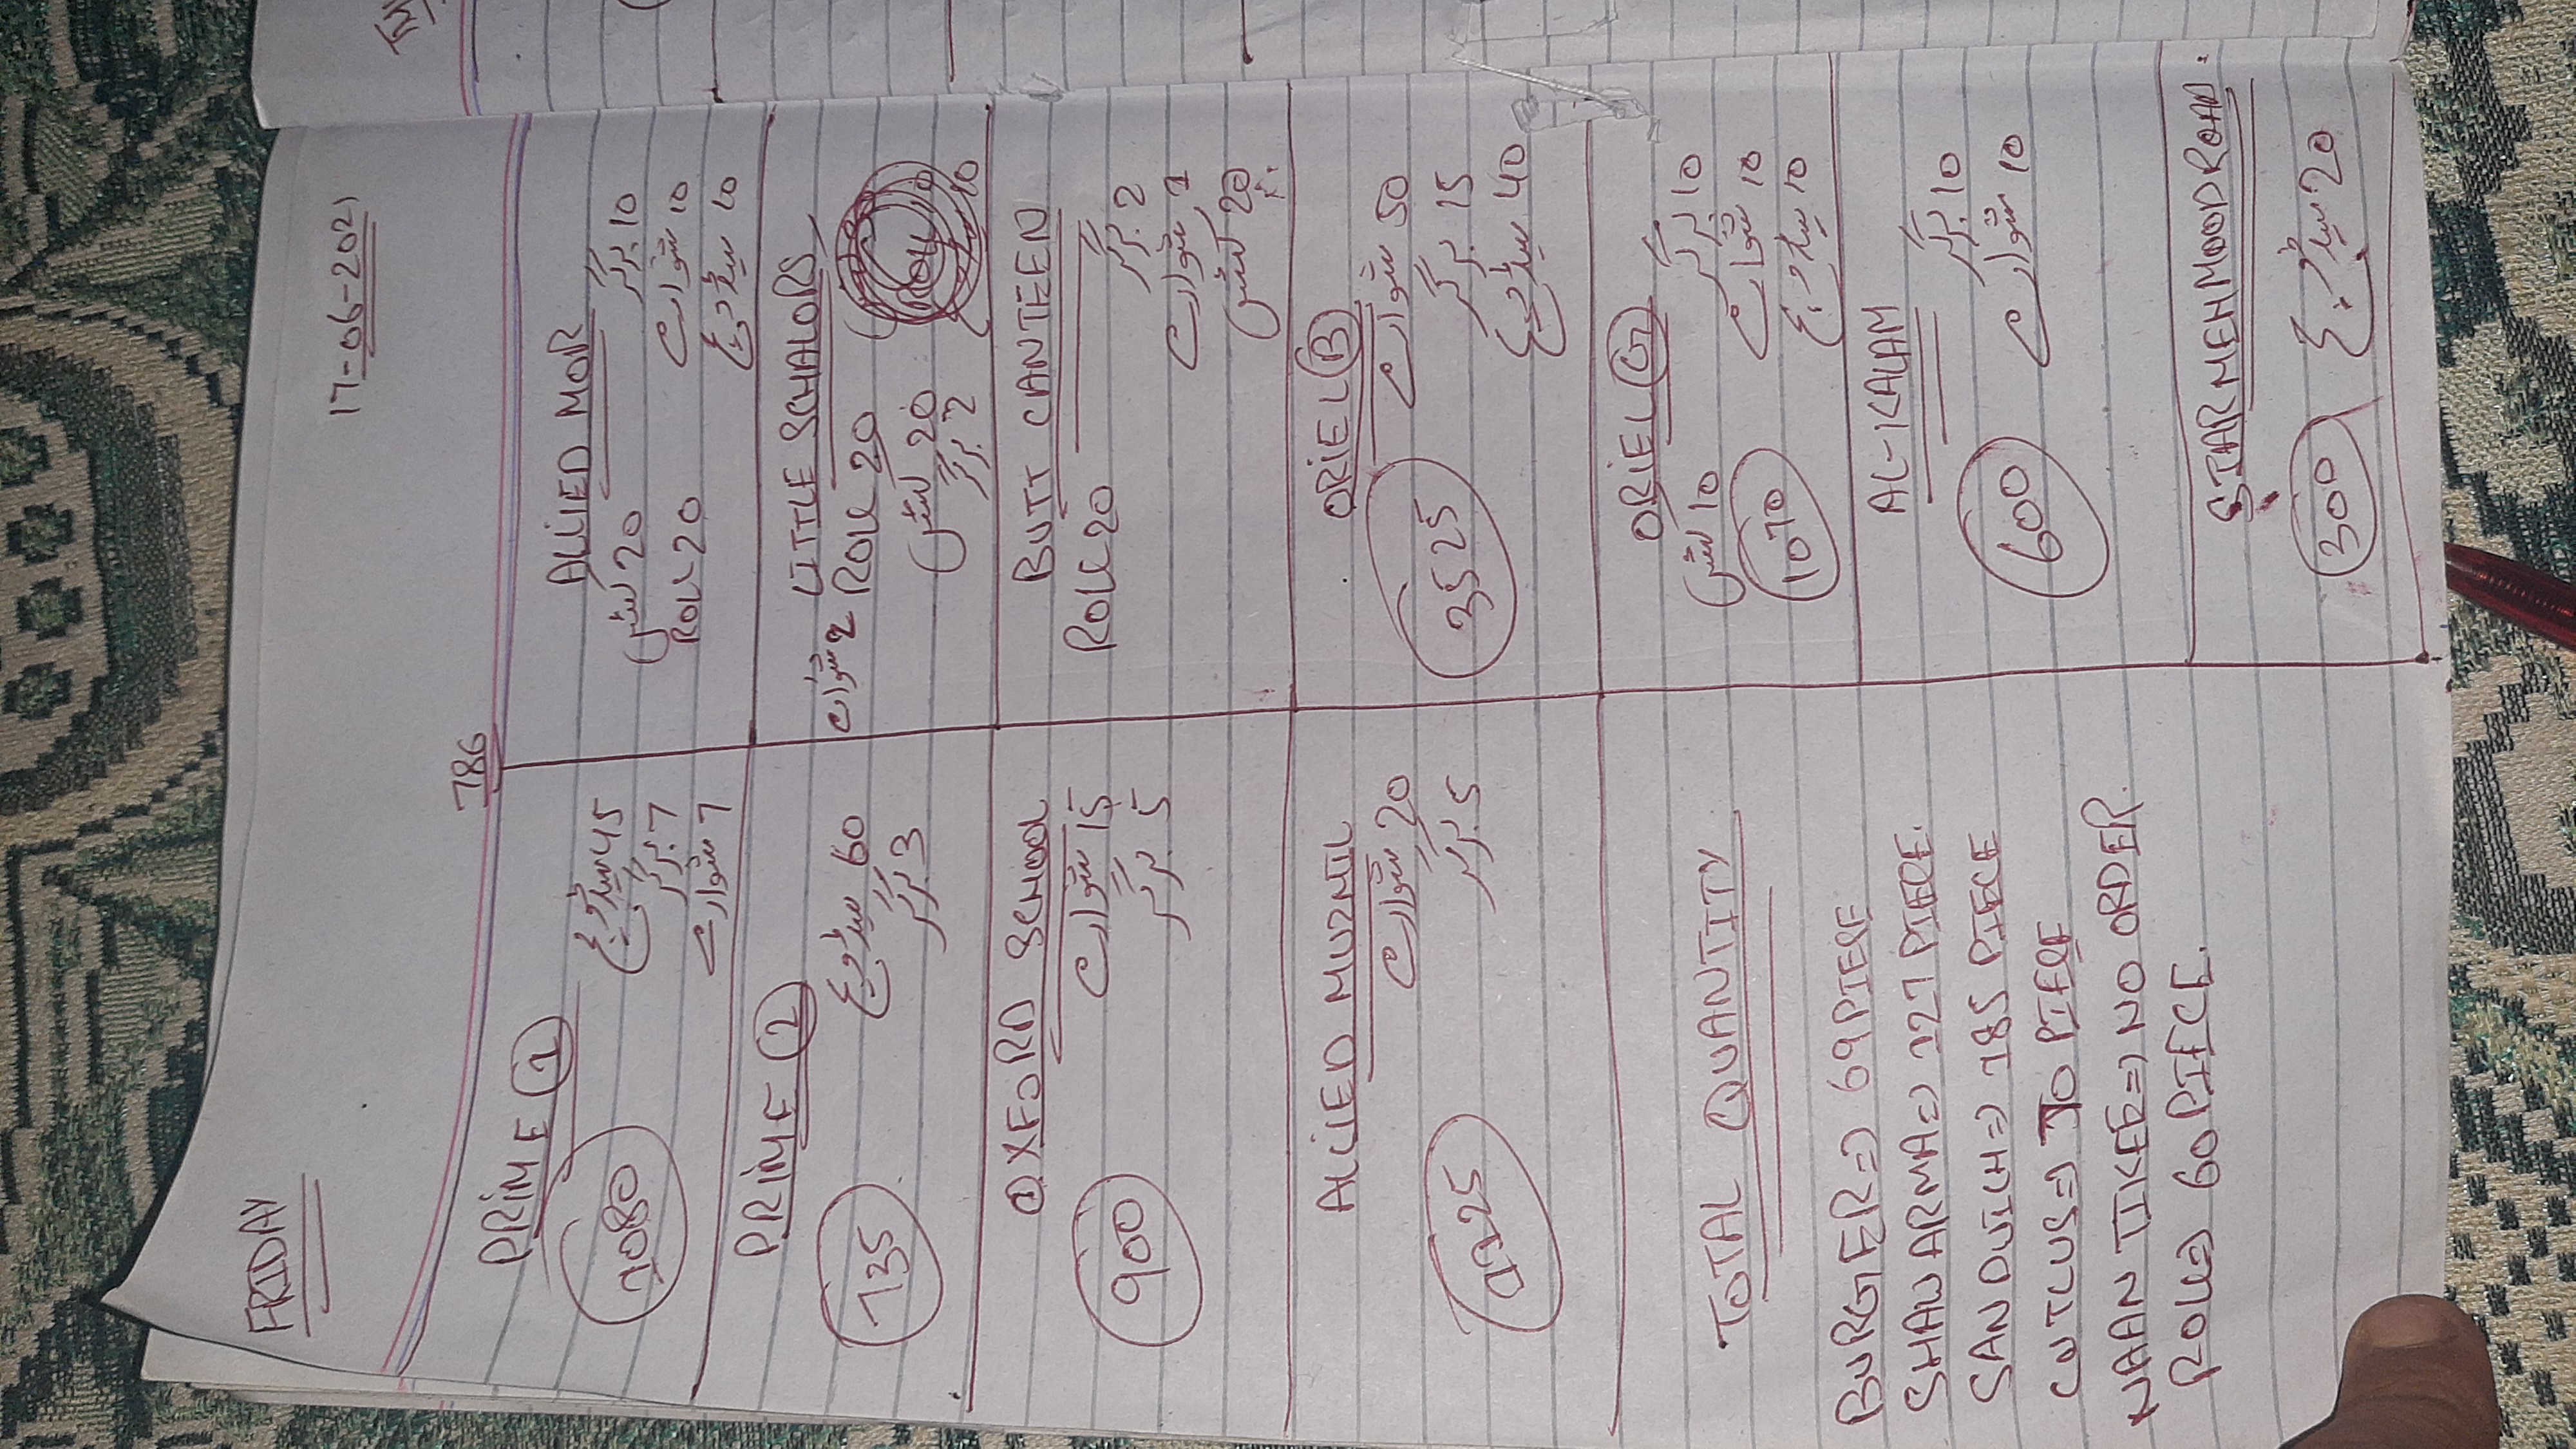 FRIDAY
17-06-2021
786
PRIME ①
سینڈوچ 45
برگر 7
شوارمہ 7
1080
ALLIED MOR
برگر 10
کٹلس 20
شوارمہ 10
ROLL 20
سینڈوچ 10
PRIME ②
سینڈوچ 60
برگر 3
735
LITTLE SCHALORS
شوارمہ 2 ROLL 20
کٹلس 20
برگر 2
OXFORD SCHOOL
شوارمہ 15
برگر 5
900
BUTT CANTEEN
ROLL 20
برگر 2
شوارمہ 1
کٹلس 20
ALLIED MUZMIL
شوارمہ 20
برگر 5
1125
ORIEL Ⓑ
شوارمہ 50
برگر 15
سینڈوچ 40
3525
ORIEL Ⓖ
برگر 10
کٹلس 10
شوارمہ 10
سینڈوچ 10
1070
AL-KALAM
برگر 10
شوارمہ 10
600
STAR MEHMOOD ROAD.
سینڈوچ 20
300
TOTAL QUANTITY
BURGER => 69 PIESE
SHAWARMA => 127 PIECE.
SANDUICH => 185 PIECE
CUTLUS => 70 PIECE
NAAN TIKEE => NO ORDER.
ROLL => 60 PIECE.